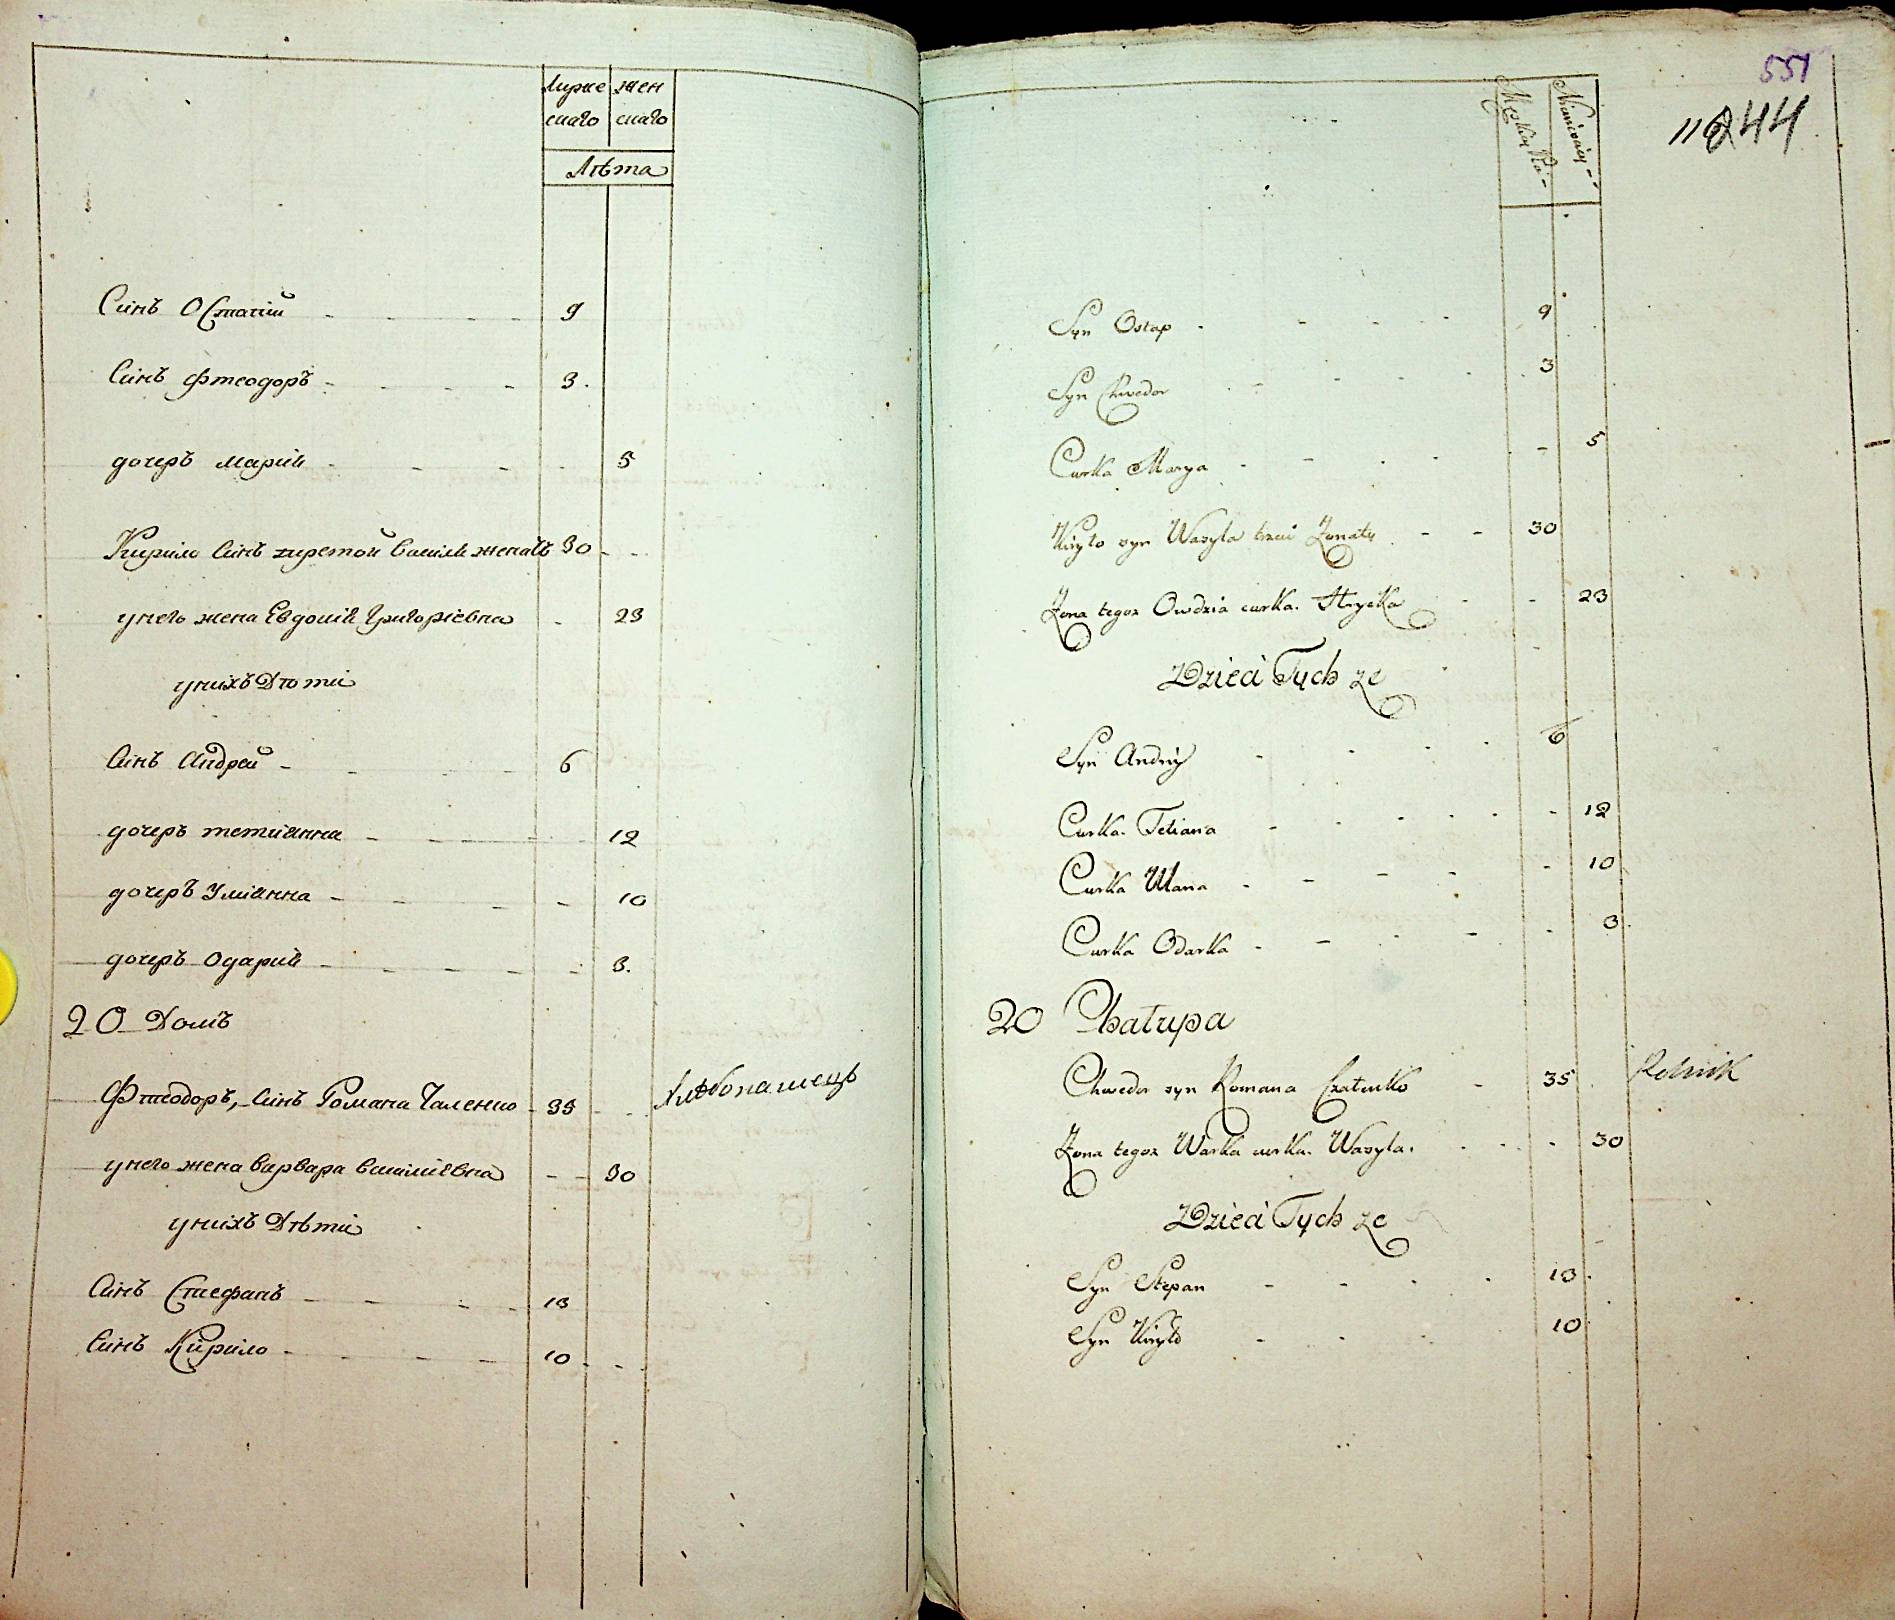 Муже жен
скаго скаго
Лѣта
Синъ Остапій 9
Синъ Фтеодоръ 3
дочеръ Марія 5
Кирило Синъ третой Васили женатъ 30
унего жена Евдокія Григоріевна 23
унихъ Дѣти
Синъ Андрей 6
дочеръ тетианна 12
дочеръ Улианна 10
дочеръ Одария 3.
20 Домъ
Фтеодоръ, Синъ Романа Чаленко 35 хлѣбопашецъ
унего жена Варвара Василиевна 30
унихъ Дѣти
Синъ Стефанъ 13
Синъ Кирило 10
551
244
Syn Ostap 9
Syn Chwedor 3
Curka Marya 5
Kiryło syn Wasyla trzeci Żonaty 30
Żona tegoż Owdzia curka Hrycka 23
Dzieci Tych że
Syn Andrij 6
Curka Tetiana 12
Curka Ulana 10
Curka Odarka 3
20 Chałupa
Chwedor syn Romana 35 Rolnik
Żona tegoż Warka curka Wasyla. 30
Dzieci Tych że
Syn Stepan 13
Syn Kiryło 10